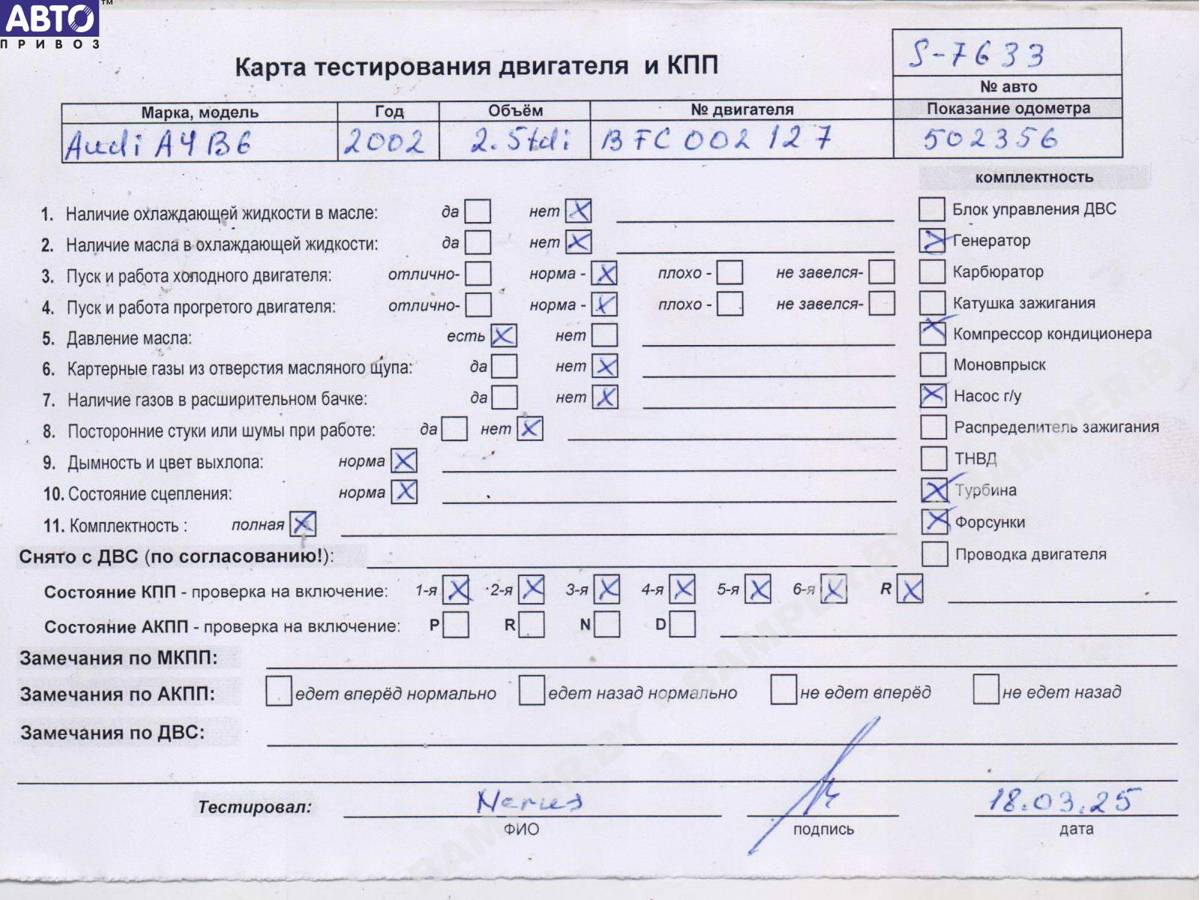 АВТО™
ПРИВОЗ
Карта тестирования двигателя и КПП
S-7633
№ авто
Марка, модель Год Объём № двигателя Показание одометра
Audi A4 B6 2002 2.5tdi BFC 002 127 502356
комплектность
1. Наличие охлаждающей жидкости в масле: да нет X
Блок управления ДВС
2. Наличие масла в охлаждающей жидкости: да нет X
X Генератор
3. Пуск и работа холодного двигателя: отлично- норма - X плохо - не завелся-
Карбюратор
4. Пуск и работа прогретого двигателя: отлично- норма - X плохо - не завелся-
Катушка зажигания
5. Давление масла: есть X нет
X Компрессор кондиционера
6. Картерные газы из отверстия масляного щупа: да нет X
Моновпрыск
7. Наличие газов в расширительном бачке: да нет X
X Насос г/у
8. Посторонние стуки или шумы при работе: да нет X
Распределитель зажигания
9. Дымность и цвет выхлопа: норма X
ТНВД
10. Состояние сцепления: норма X
X Турбина
11. Комплектность : полная X
X Форсунки
Снято с ДВС (по согласованию!):
Проводка двигателя
Состояние КПП - проверка на включение: 1-я X 2-я X 3-я X 4-я X 5-я X 6-я X R X
Состояние АКПП - проверка на включение: P R N D
Замечания по МКПП:
Замечания по АКПП: едет вперёд нормально едет назад нормально не едет вперёд не едет назад
Замечания по ДВС:
Тестировал: 18.03.25
ФИО подпись дата
BAMPER.BY BAMPER.BY BAMPER.BY BAMPER.BY